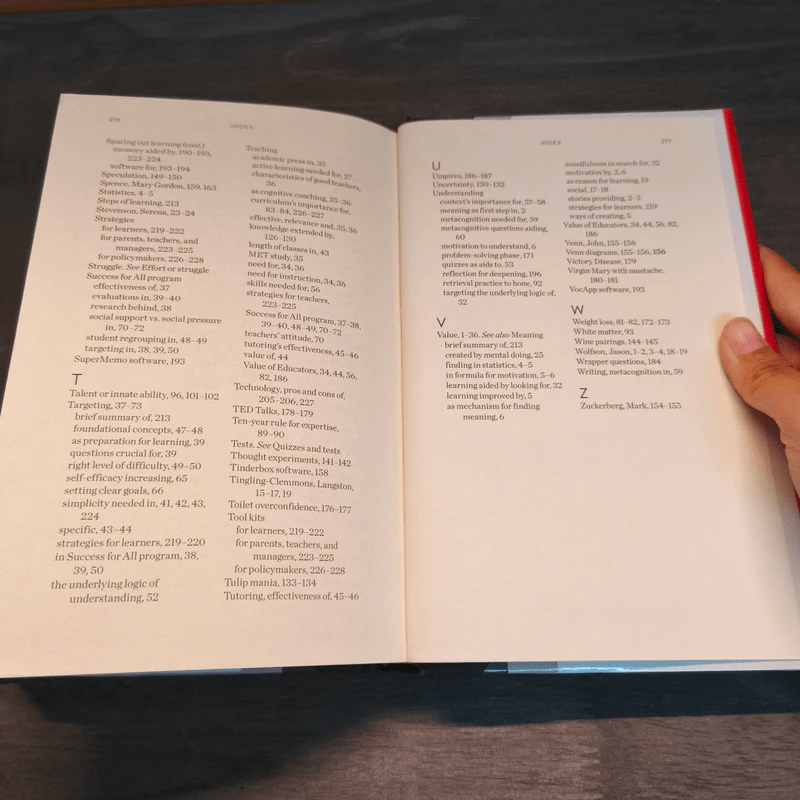 276
INDEX
Spacing out learning (cont.)
memory aided by, 190–193,
223–224
software for, 193–194
Speculation, 149–150
Spence, Mary Gordon, 159, 163
Statistics, 4–5
Steps of learning, 213
Stevenson, Serena, 23–24
Strategies
for learners, 219–222
for parents, teachers, and
managers, 223–225
for policymakers, 226–228
Struggle. See Effort or struggle
Success for All program
effectiveness of, 37
evaluations in, 39–40
research behind, 38
social support vs. social pressure
in, 70–72
student regrouping in, 48–49
targeting in, 38, 39, 50
SuperMemo software, 193
T
Talent or innate ability, 96, 101–102
Targeting, 37–73
brief summary of, 213
foundational concepts, 47–48
as preparation for learning, 39
questions crucial for, 39
right level of difficulty, 49–50
self-efficacy increasing, 65
setting clear goals, 66
simplicity needed in, 41, 42, 43,
224
specific, 43–44
strategies for learners, 219–220
in Success for All program, 38,
39, 50
the underlying logic of
understanding, 52
Teaching
academic press in, 35
active learning needed for, 27
characteristics of good teachers,
36
as cognitive coaching, 35–36
curriculum's importance for,
83–84, 226–227
effective, relevance and, 35, 36
knowledge extended by,
126–130
length of classes in, 43
MET study, 35
need for, 34, 36
need for instruction, 34, 36
skills needed for, 56
strategies for teachers,
223–225
Success for All program, 37–38,
39–40, 48–49, 70–72
teachers' attitude, 70
tutoring's effectiveness, 45–46
value of, 44
Value of Educators, 34, 44, 56,
82, 186
Technology, pros and cons of,
205–206, 227
TED Talks, 178–179
Ten-year rule for expertise,
89–90
Tests. See Quizzes and tests
Thought experiments, 141–142
Tinderbox software, 158
Tingling-Clemmons, Langston,
15–17, 19
Toilet overconfidence, 176–177
Tool kits
for learners, 219–222
for parents, teachers, and
managers, 223–225
for policymakers, 226–228
Tulip mania, 133–134
Tutoring, effectiveness of, 45–46
INDEX
277
U
Umpires, 186–187
Uncertainty, 130–132
Understanding
context's importance for, 57–58
meaning as first step in, 2
metacognition needed for, 59
metacognitive questions aiding,
60
motivation to understand, 6
problem-solving phase, 171
quizzes as aids to, 53
reflection for deepening, 196
retrieval practice to hone, 92
targeting the underlying logic of,
52
V
Value, 1–36. See also Meaning
brief summary of, 213
created by mental doing, 25
finding in statistics, 4–5
in formula for motivation, 5–6
learning aided by looking for, 32
learning improved by, 5
as mechanism for finding
meaning, 6
mindfulness in search for, 32
motivation by, 2, 6
as reason for learning, 19
social, 17–18
stories providing, 2–3
strategies for learners, 219
ways of creating, 5
Value of Educators, 34, 44, 56, 82,
186
Venn, John, 155–156
Venn diagrams, 155–156, 156
Victory Disease, 179
Virgin Mary with mustache,
180–181
VocApp software, 193
W
Weight loss, 81–82, 172–173
White matter, 93
Wine pairings, 144–145
Wolfson, Jason, 1–2, 3–4, 18–19
Wrapper questions, 184
Writing, metacognition in, 59
Z
Zuckerberg, Mark, 154–155